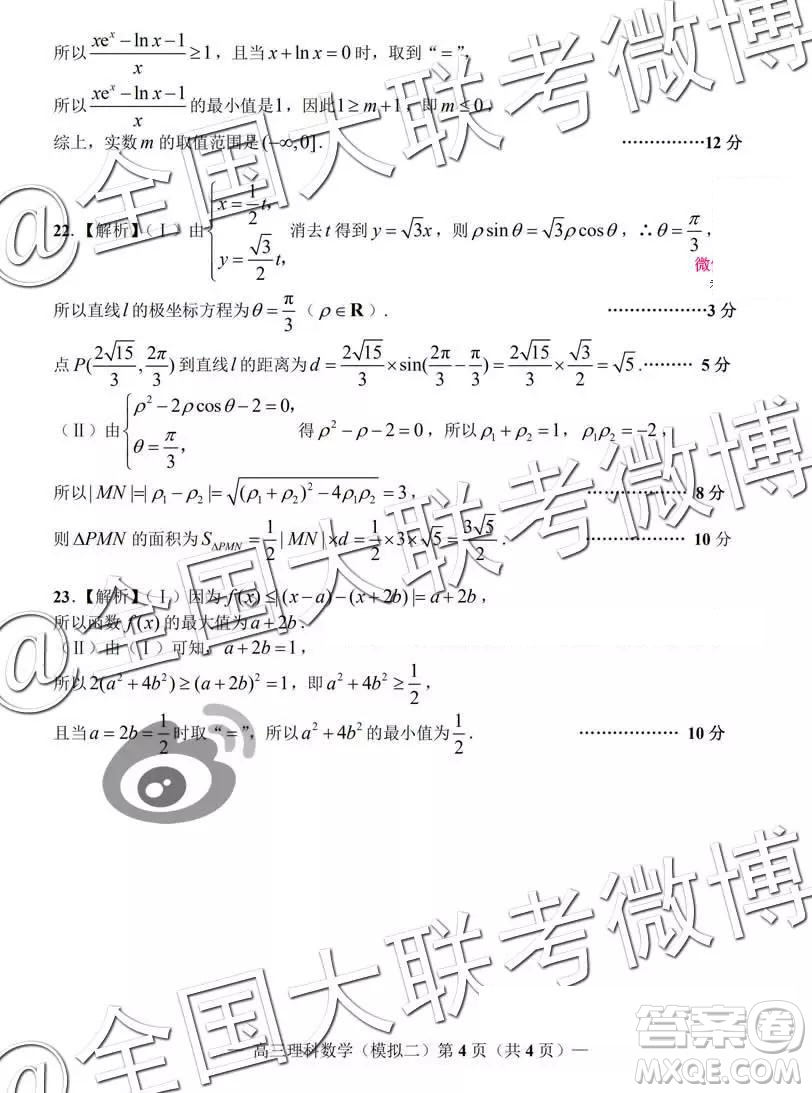 所以 (xe^x − ln x − 1)/x ≥ 1，且当 x + ln x = 0 时，取到“=”，
所以 (xe^x − ln x − 1)/x 的最小值是1，因此1 ≥ m + 1，即 m ≤ 0，
综上，实数 m 的取值范围是(−∞,0]． ……………12 分
22．【解析】（Ⅰ）由 { x = 1/2 t， y = √3/2 t， 消去 t 得到 y = √3x，则 ρ sin θ = √3ρ cos θ，∴ θ = π/3，
所以直线 l 的极坐标方程为 θ = π/3（ρ ∈ R）． ………………3 分
点 P(2√15/3, 2π/3) 到直线 l 的距离为 d = 2√15/3 × sin(2π/3 − π/3) = 2√15/3 × √3/2 = √5．……… 5 分
（Ⅱ）由 { ρ² − 2ρ cos θ − 2 = 0， θ = π/3， 得 ρ² − ρ − 2 = 0，所以 ρ₁ + ρ₂ = 1，ρ₁ρ₂ = −2，
所以| MN |=| ρ₁ − ρ₂ |= √((ρ₁ + ρ₂)² − 4ρ₁ρ₂) = 3， ……………… 8 分
则 ΔPMN 的面积为 S_ΔPMN = 1/2 | MN | × d = 1/2 × 3 × √5 = 3√5/2． ……………… 10 分
23．【解析】（Ⅰ）因为 f(x) ≤| (x − a) − (x + 2b) |= a + 2b，
所以函数 f(x) 的最大值为 a + 2b．
（Ⅱ）由（Ⅰ）可知，a + 2b = 1，
所以 2(a² + 4b²) ≥ (a + 2b)² = 1，即 a² + 4b² ≥ 1/2，
且当 a = 2b = 1/2 时取“=”，所以 a² + 4b² 的最小值为 1/2． ……………… 10 分
— 高三理科数学（模拟二）第 4 页（共 4 页）—
@全国大联考微博
@全国大联考微博
答案卷
MXQE.COM